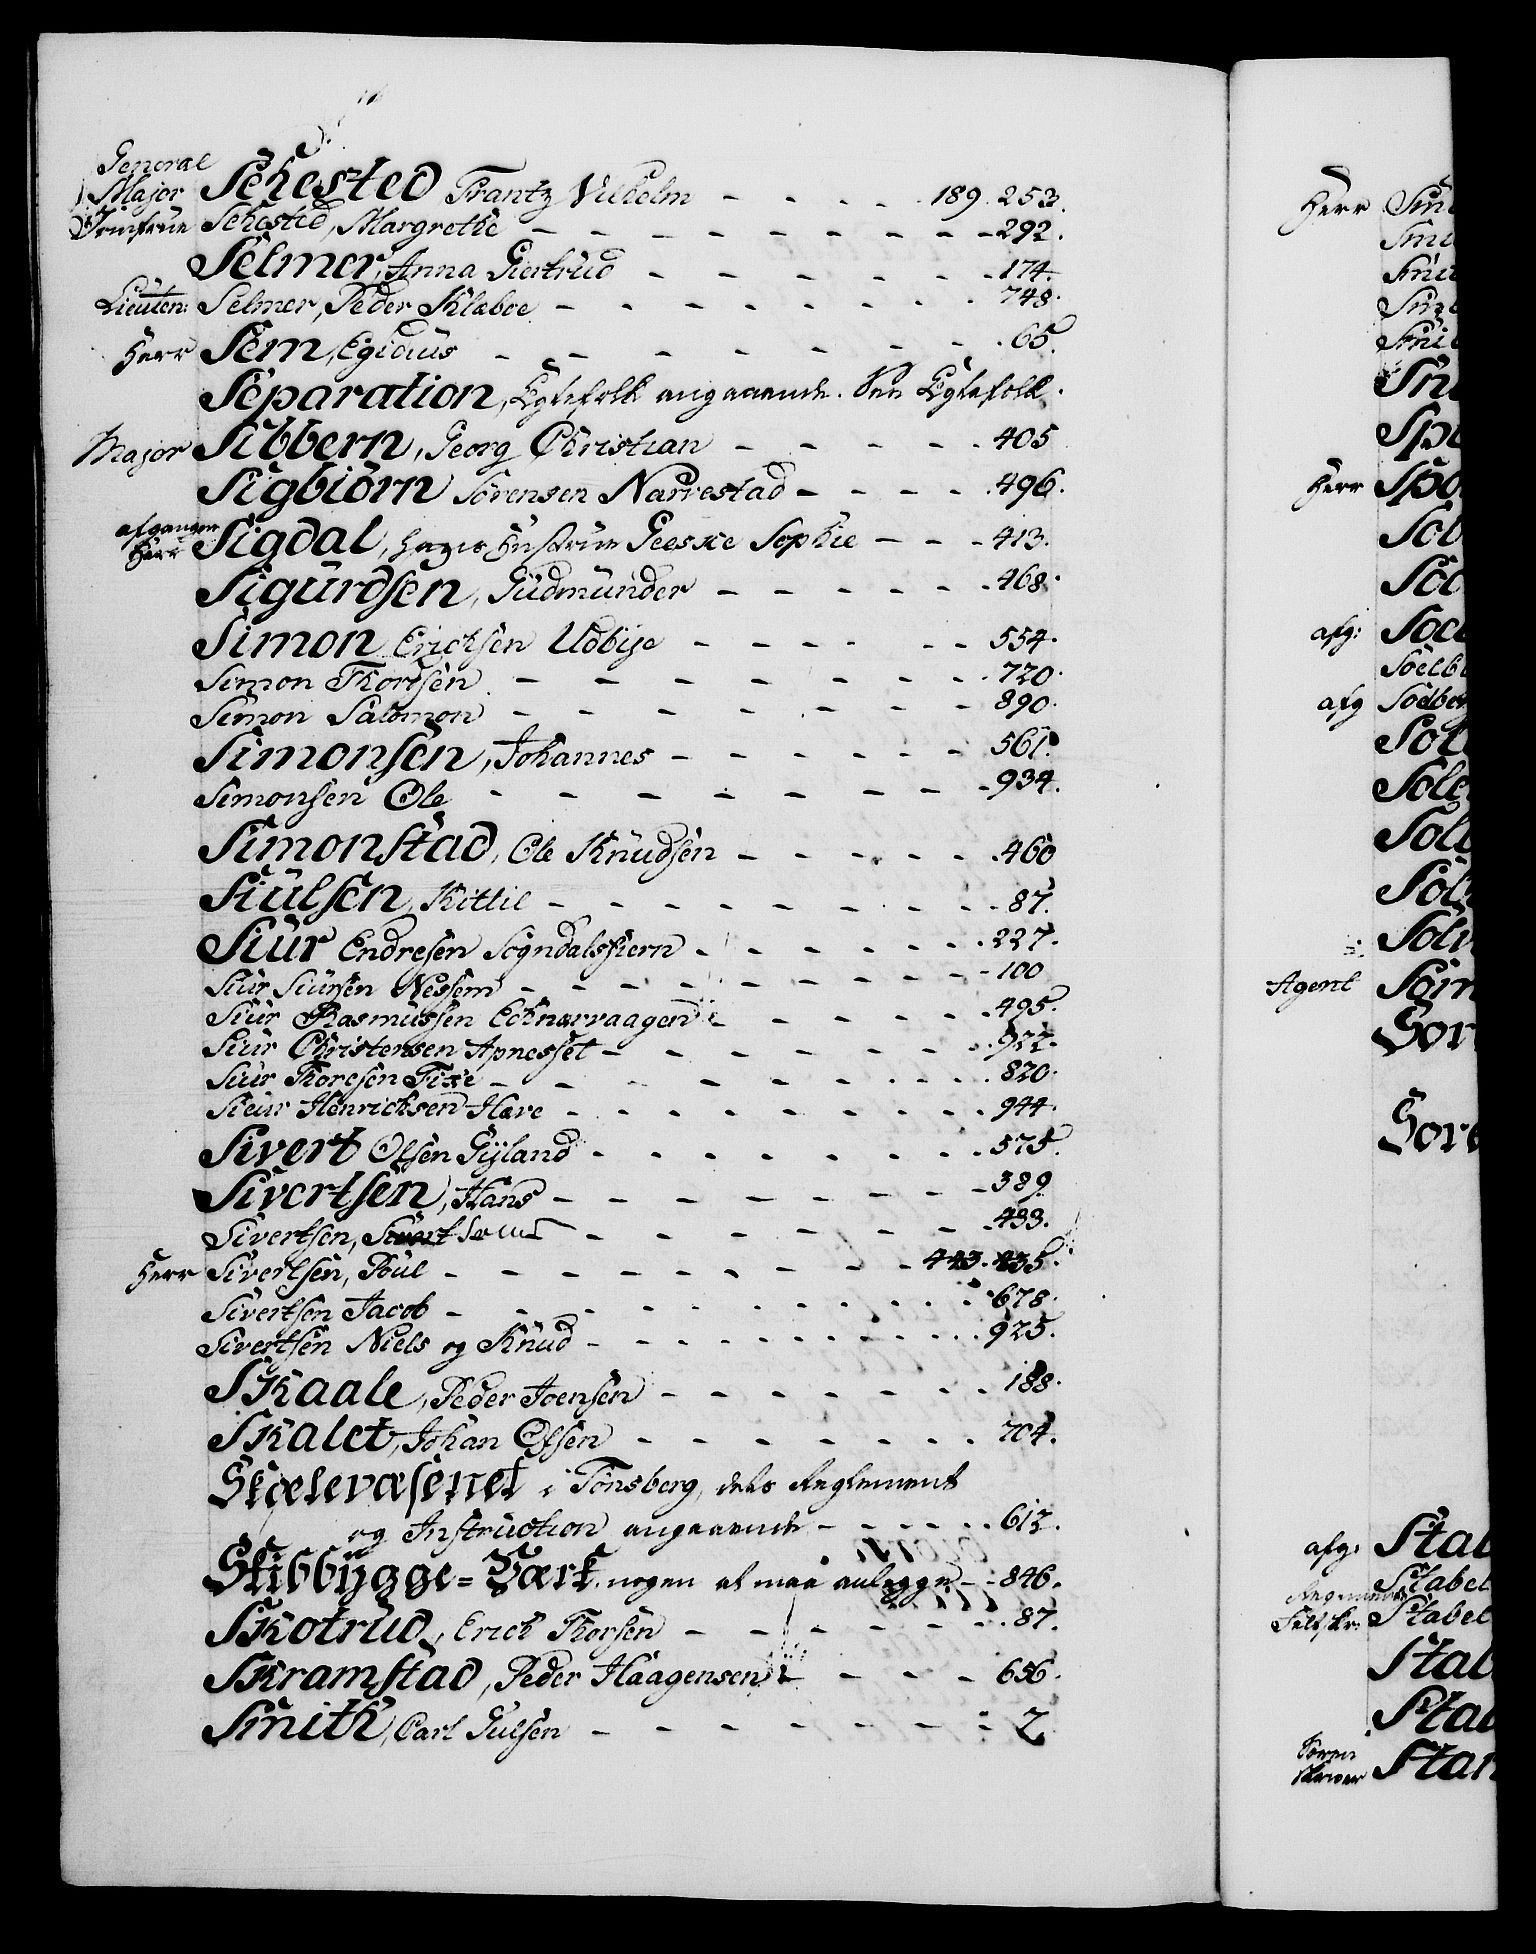 S.
General
Major Sehested Frantz Vilhelm - - - - . 189. 253.
Jomfrue Sehested, Margrethe - - - - - - - - - 292.
Selmer, Anna Giertrud - - - - - - 174.
Lieuten: Selmer, Peder Klæboe - - - - - - - - 748.
Herr Sem, Egidius - - - - - - - . 65.
Separation, Egtefolk angaaende. See Egtefolk.
Major Sibbern, Georg Christian - - - - - . 405
Sigbiørn Sørensen Narvestad - - - - . 496.
afgangen
Herr Sigdal, hans Hustrue Geeske Sophie - - - 413.
Sigurdsen, Gudmunder - - - - - . 468.
Simon Ericksen Udbye - - - - - - 554.
Simon Thorsen - - - - - - - . 720.
Simon Salomon - - - - - - - 890.
Simonsen, Johannes - - - - - - 561.
Simonsen Ole - - - - - - - . 934.
Simonstad, Ole Knudsen - - - - - . 460
Siulsen, Kittil - - - - - - - - . 87.
Siur Endresen Sogndalsstrand - - - - - . 227.
Siur Siursen Nessem - - - - - - - - 100
Siur Rasmussen Echnærvaagen - - - - - . 495.
Siur Christensen Apnesset - - - - - - . 922.
Siur Thoresen Tixe - - - - - - - . 820.
Sieur Henrichsen Have - - - - - - - - 944.
Sivert Olsen Gyland - - - - - - - . 575.
Sivertsen, Hans - - - - - - - - 389.
Sivertsen, - - - - - - . 433.
Herr Sivertsen, Poul - - - - - - - - 443. 235.
Sivertsen Jacob - - - - - - - - . 678.
Sivertsen Niels og Knud - - - - - - - . 925.
Skaale, Peder Joensen - - - - - - - 188.
Skalet, Johan Olsen - - - - - - - 704.
Skolevæsenet i Tönsberg, dets Reglement
og Instruction angaaende - - - - - . 612.
Skibbygge=Værk, nogen at maa anlegge - . 846.
Skotrud, Erich Thorsen - - - - - - . 87.
Skramstad, Peder Haagensen - - - - 656.
Smith, Carl Gulsen - - - - - - : 2
Herr
Herr
afg:
afg
Agent
afg: